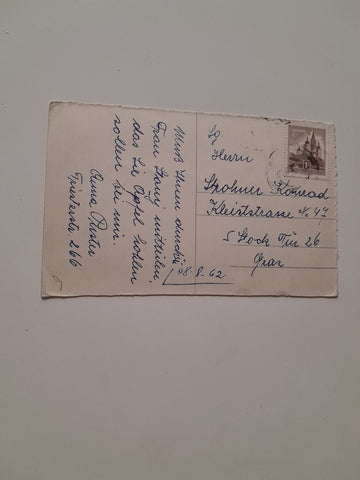 Muß Ihnen durch
Frau Stary mitteilen,
das Sie Äpfel holen
sollen bei mir
Anna Pastor
Triesterstr. 266
08.8.62
Sg.
Herrn
Skohner Konrad
Kleiststrasse No 47
5 Stock Tür 26
Graz